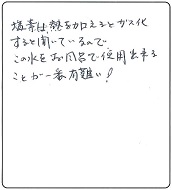 塩素は、熱を加えるとガス化
すると聞いているので
この水をお風呂で使用出来る
ことが一番有難い!